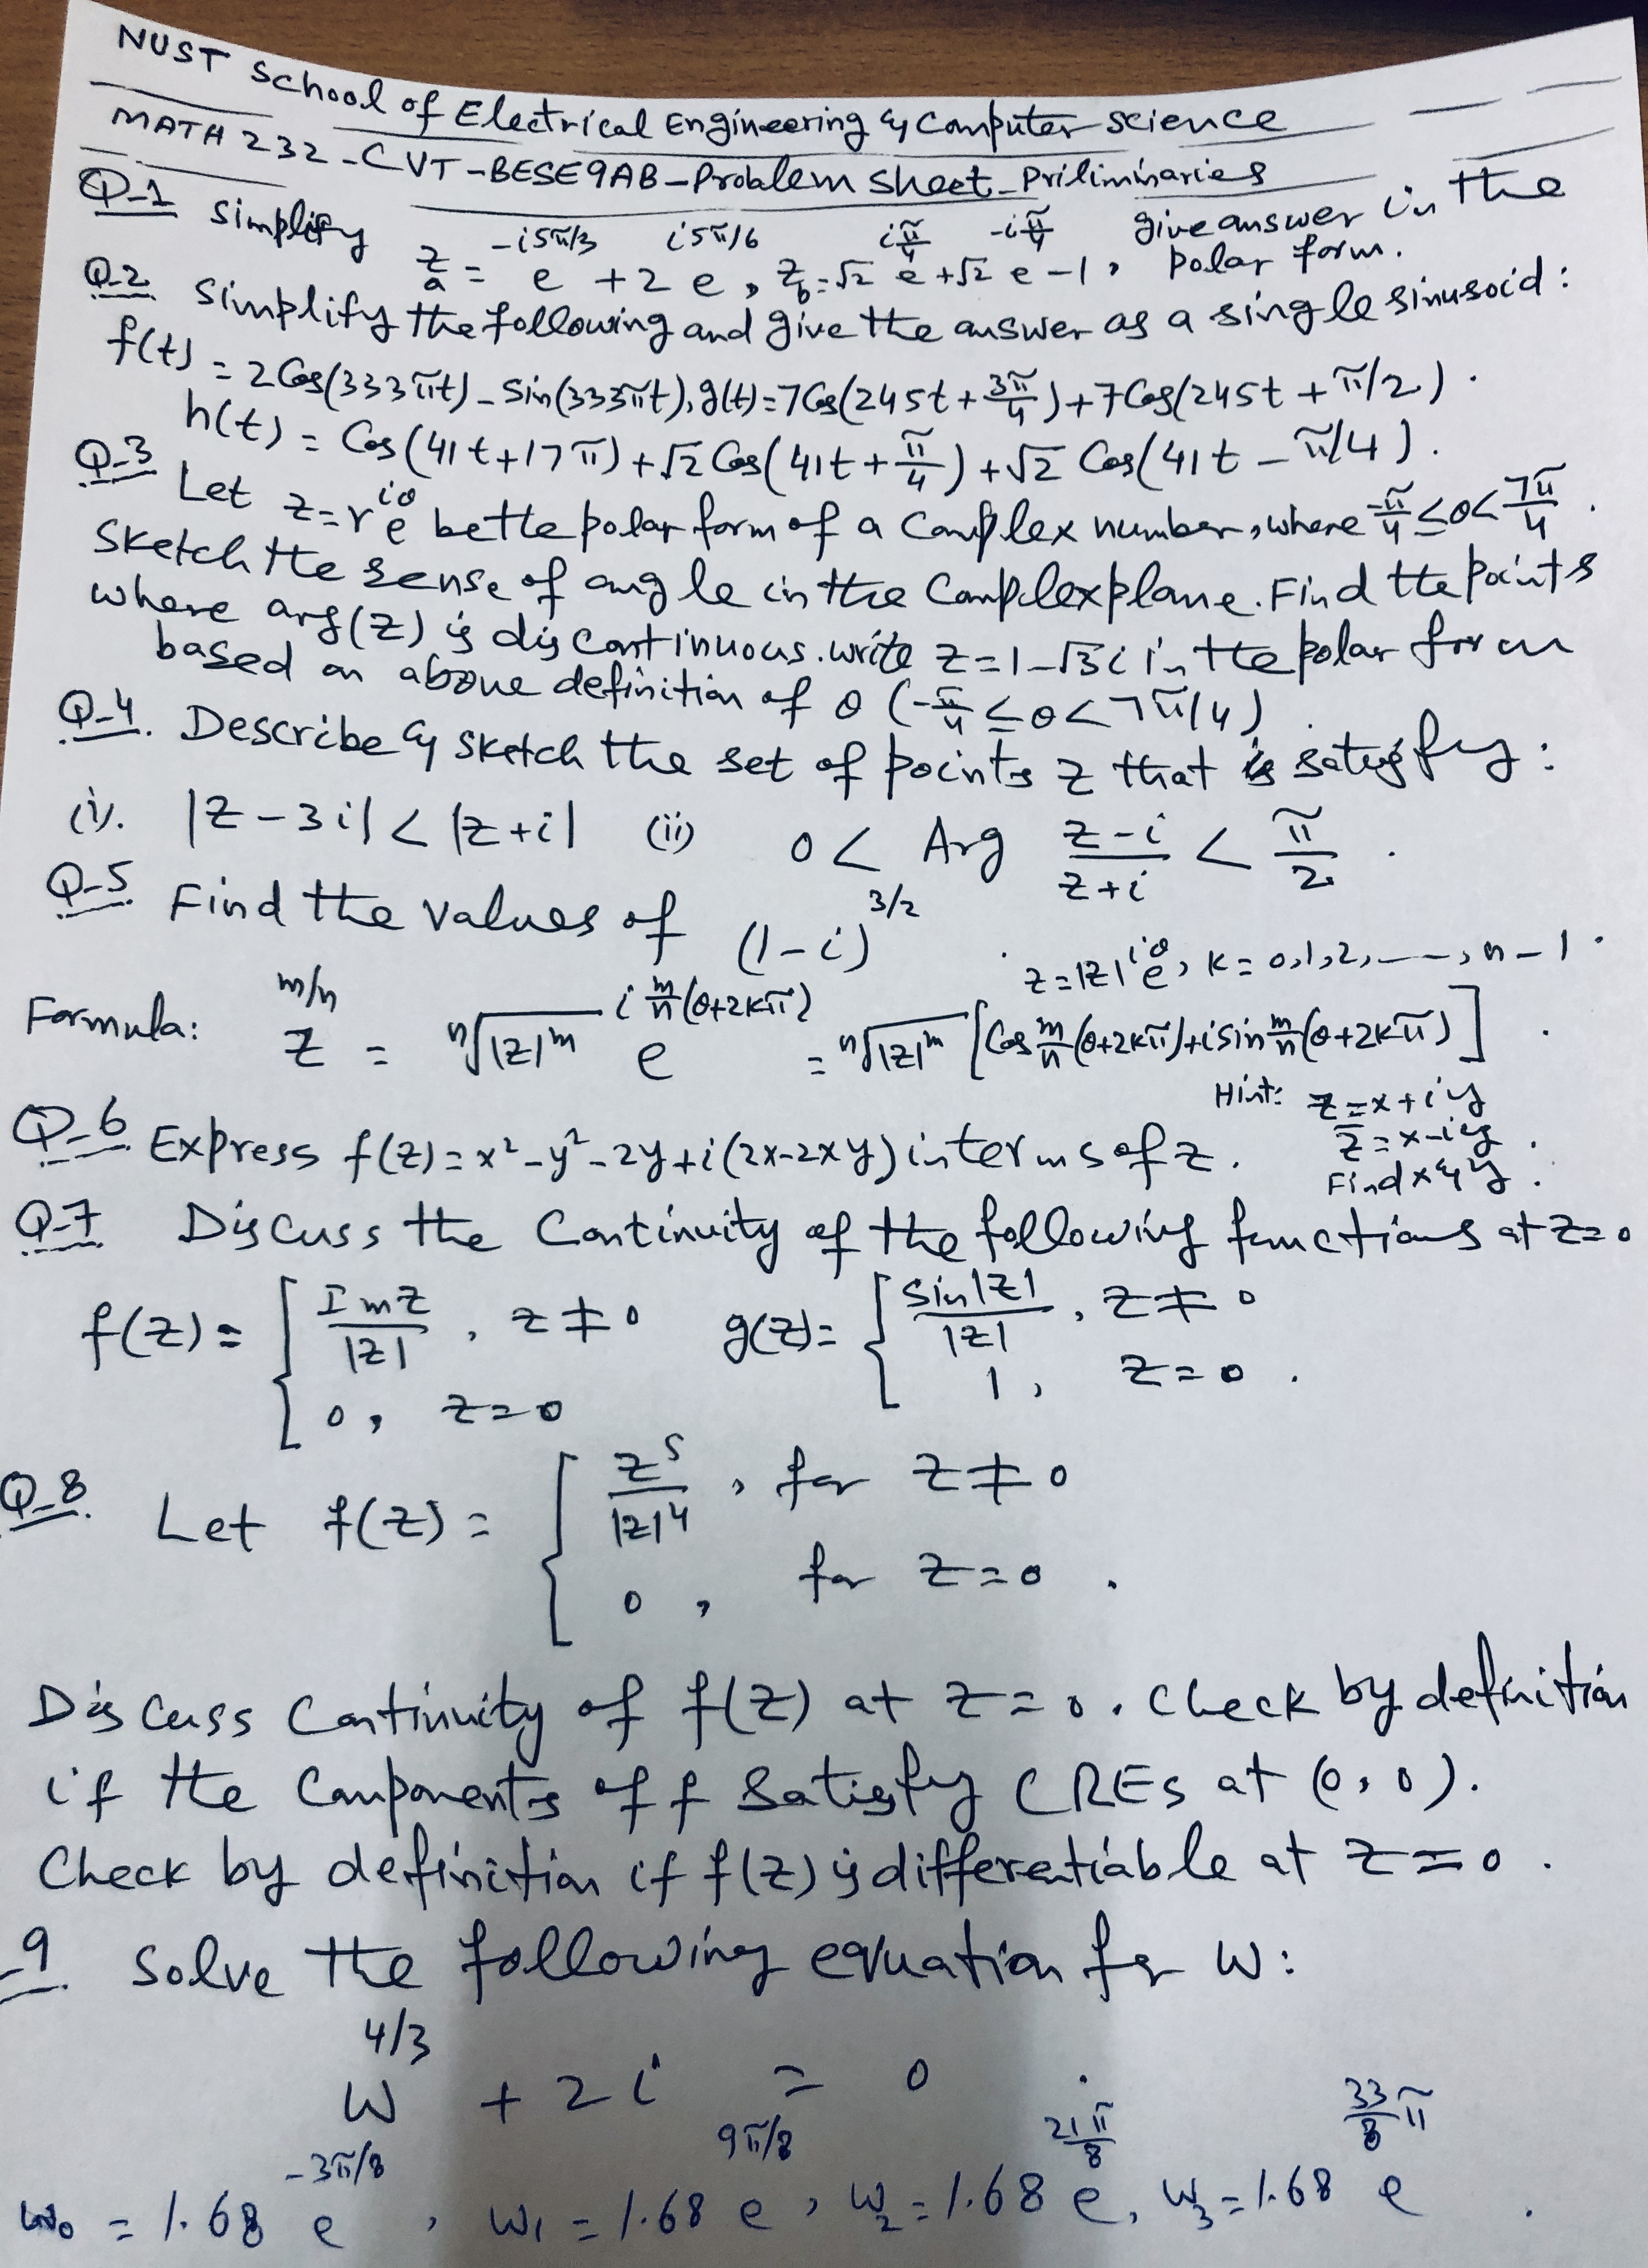 NUST School of Electrical Engineering & Computer Science
MATH 232-CVT-BESE9AB-Problem Sheet-Priliminaries
Q-1 Simplify z_a = e^{-i5π/3} + 2e^{i5π/6}, z_b = √2 e^{iπ/4} + √2 e^{-iπ/4} - 1, give answer in the polar form.
Q-2 Simplify the following and give the answer as a single sinusoid:
f(t) = 2Cos(333πt) - Sin(333πt), g(t) = 7Cos(245t + 3π/4) + 7Cos(245t + π/2).
h(t) = Cos(41t+17π) + √2 Cos(41t + π/4) + √2 Cos(41t - π/4).
Q-3 Let z = re^{iθ} be the polar form of a Complex number, where -π/4 ≤ θ < 7π/4.
Sketch the sense of angle in the Complex plane. Find the points
where arg(z) is discontinuous. write z = 1-√3i in the polar form
based on above definition of θ (-π/4 ≤ θ < 7π/4).
Q-4. Describe & Sketch the set of points z that is satisfy:
(i). |z-3i| < |z+i| (ii) 0 < Arg (z-i)/(z+i) < π/2.
Q-5 Find the values of (1-i)^{3/2}.
z = |z|e^{iθ}, k = 0,1,2,-----, n-1.
Formula: z^{m/n} = ⁿ√|z|^m e^{i m/n (θ+2kπ)} = ⁿ√|z|^m [Cos m/n (θ+2kπ) + i Sin m/n (θ+2kπ)].
Q-6 Express f(z) = x²-y²-2y+i(2x-2xy) in terms of z.
Hint: z = x+iy
z̄ = x-iy.
Find x & y.
Q-7 Discuss the Continuity of the following functions at z=0
f(z) = { Im z/|z|, z≠0 g(z) = { Sin|z|/|z|, z≠0
0, z=0 1, z=0.
Q-8. Let f(z) = { z⁵/|z|⁴, for z≠0
0, for z=0.
Discuss Continuity of f(z) at z=0. Check by definition
if the Components of f Satisfy CREs at (0,0).
Check by definition if f(z) is differentiable at z=0.
-9. Solve the following equation for w:
w^{4/3} + 2i = 0.
w₀ = 1.68 e^{-3π/8}, w₁ = 1.68 e^{9π/8}, w₂ = 1.68 e^{21π/8}, w₃ = 1.68 e^{33/8 π}.